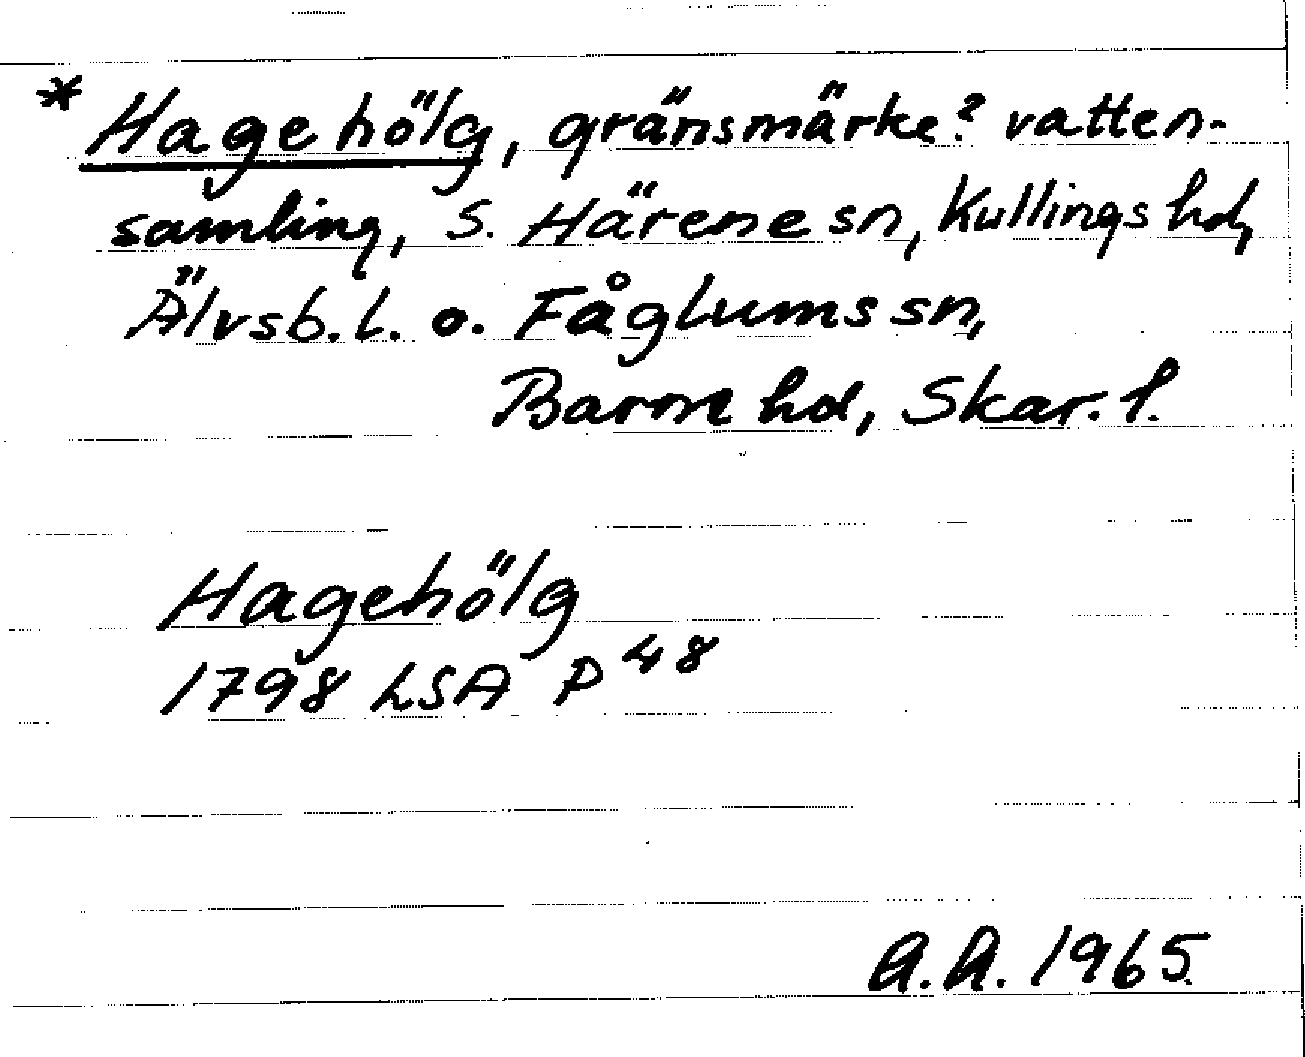 * Hagehölg, gränsmärke? vatten-
samling, S. Härene sn, Kullings hd,
Älvsb. l. o. Fåglums sn,
Barne hd, Skar. l.
Hagehölg
1798 LSA P 48
A.A. 1965